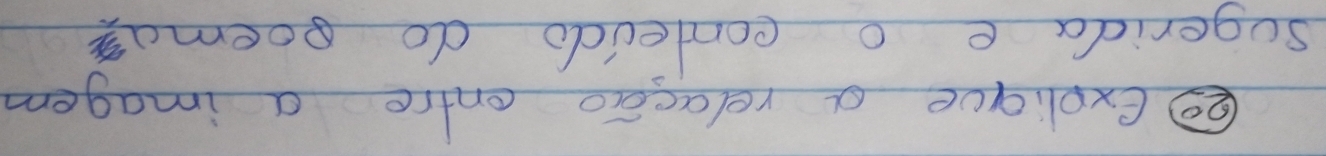 Explique a relação entre a imagem
sugerida e o conteúdo do poema